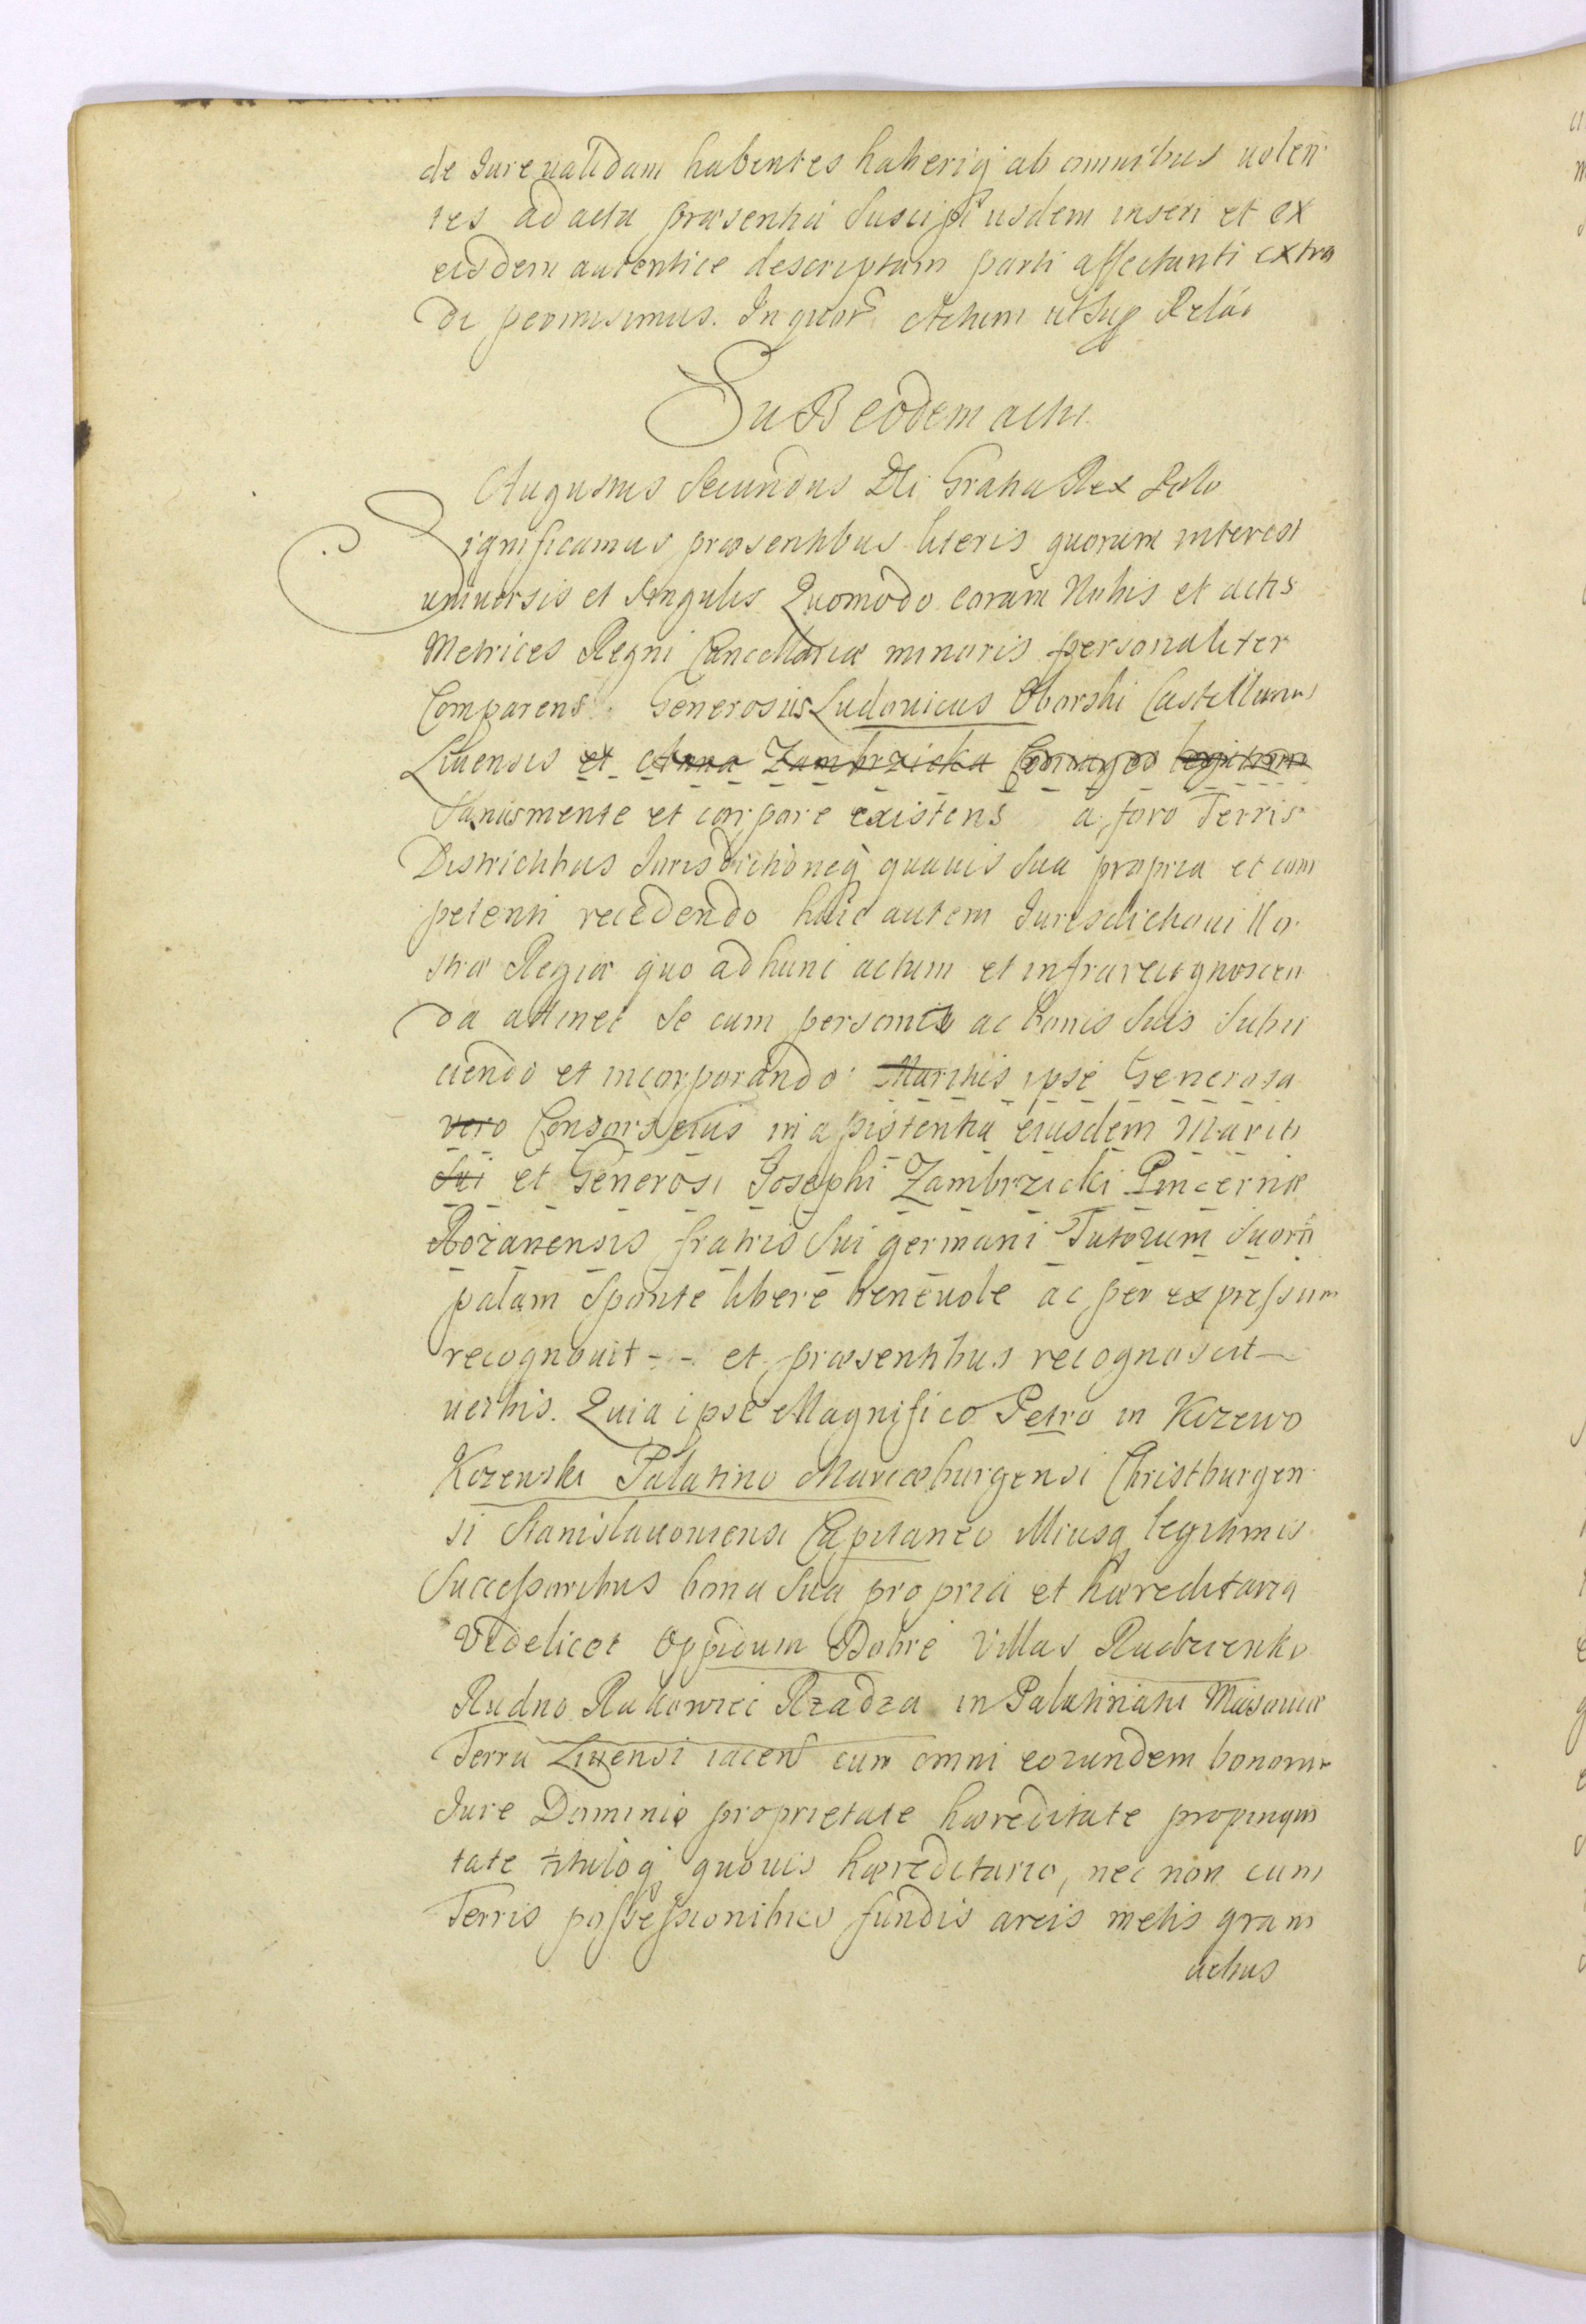 de Jure ualidam habentes haberiq́ ab omnibus uolen
tes ad acta præsentia Suscipi iisdem inseri et ex
eisdem autentice descriptam parti affectanti extra
di permisimus. In quor Actum ut Sup Relao
SuB eodem actu.
Augustus Secundus Dei Gratia Rex Polo
Significamus præsentibus literis quorum interest
uniuersis et Singulis Quomodo coram Nobis et actis
Metrices Regni Cancellariæ minoris personaliter
Comparens Generosus Ludouicus Oborski Castellanus
Liuensis et Anna Zambrzicka Coniuges legitimi
Sanusmente et corpore existens a foro Terris
Districtibus Jurisdictioneq́ quauis Sua propria et com
petenti recedendo huic autem Jurisdictioni No
stræ Regiæ quo ad hunc actum et infrarecognoscen
da attinet Se cum personis ac bonis Suis Subii
ciendo et incorporando Maritus ipse Generosa
vero Consors eius in assistentia eiusdem Mariti
Sui et Generosi Josephi Zambrzicki Pincernæ
Rozanensis fratris Sui germani Tutorum Suorū
palam Sponte libere beneuole ac per expressum
recognouit - - et præsentibus recognoscit —
uerbis. Quia ipse Magnifico Petro in Kczewo
Kczewski Palatino Mariæburgensi Christburgen
si Stanislauoniensi Capitaneo Illiusq legitimis
Successoribus bona Sua propria et hæreditaria
Videlicet Oppidum Dobre Villas Rudzienko
Rudno Rakowiec Rzadza in Palatinatu Masouiæ
Terra Liuensi iacen cum omni eorundem bonorum
Jure Dominio proprietate hæreditate propinqui
tate tituloq́ quouis hæreditario, nec non cum
Terris possessionibus fundis areis metis gran
arius